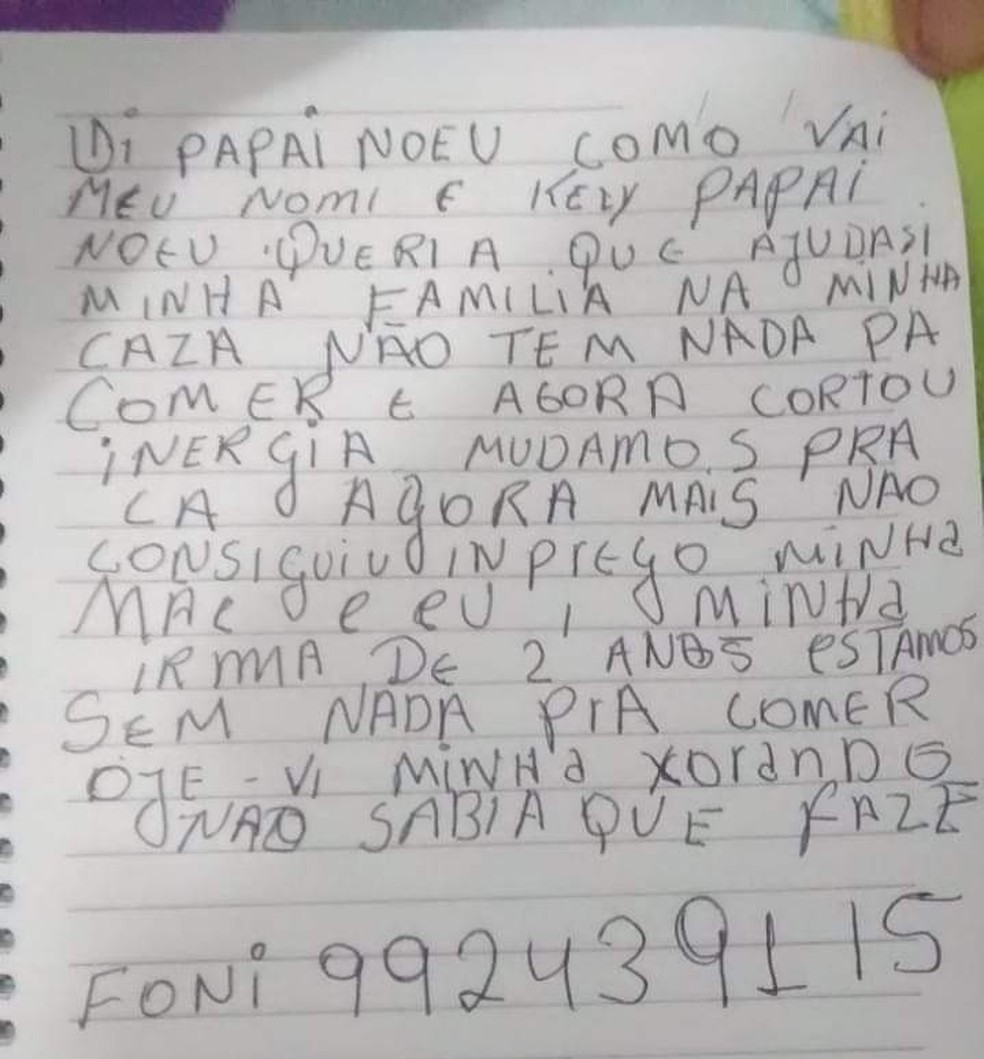 Oi PAPAi NOEU COMO VAi
MEU NOMI E KELY PAPAi
NOEU QUERIA QUE AJUDASI
MINHA FAMILIA NA MINHA
CAZA NÃO TEM NADA PA
COMER E AGORA CORTOU
iNERGiA MUDAMOS PRA
CA AGORA MAIS NAO
CONSIGUiU INPrEGO MiNHa
MAE e eU, MiNHa
IRMMA DE 2 ANOS eSTAMOS
SEM NADA PrA COMER
OJE - VI MiNHa XOranDO
NAO SABIA QUE FAZE
FONi 992439115